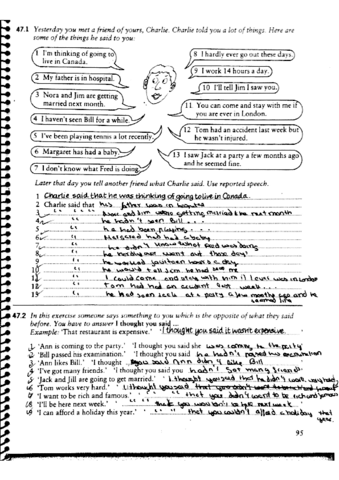 47.1 Yesterday you met a friend of yours, Charlie. Charlie told you a lot of things. Here are
some of the things he said to you:
1 I'm thinking of going to
live in Canada.
2 My father is in hospital.
3 Nora and Jim are getting
married next month.
4 I haven't seen Bill for a while.
5 I've been playing tennis a lot recently.
6 Margaret has had a baby.
7 I don't know what Fred is doing.
8 I hardly ever go out these days.
9 I work 14 hours a day.
10 I'll tell Jim I saw you.
11 You can come and stay with me if
you are ever in London.
12 Tom had an accident last week but
he wasn't injured.
13 I saw Jack at a party a few months ago
and he seemed fine.
Later that day you tell another friend what Charlie said. Use reported speech.
1 Charlie said that he was thinking of going to live in Canada
2 Charlie said that his father was in hospital
3 " " " Nora and Jim were getting married the next month
4 he hadn't seen Bill
5 " he had been playing
6 " Margaret had had a baby
7 " he didn't know what Fred was doing
8 " he hardly ever went out those days
9 " he worked fourteen hours a day
10 " he would tell Jim he had seen me
11 " I could come and stay with him if I ever was in London
12 " Tom had had an accident last week
13 " he had seen Jack at a party a few months ago and he
seemed fine
47.2 In this exercise someone says something to you which is the opposite of what they said
before. You have to answer I thought you said ...
Example: 'That restaurant is expensive.' 'I thought you said it wasn't expensive.
1 'Ann is coming to the party.' 'I thought you said she was coming to the party
2 'Bill passed his examination.' 'I thought you said he hadn't passed his examination
3 'Ann likes Bill.' 'I thought you said Ann didn't like Bill
4 'I've got many friends.' 'I thought you said you hadn't got many friends
5 'Jack and Jill are going to get married.' 'I thought you said that
6 'Tom works very hard.' 'I thought you said that
7 'I want to be rich and famous.' " " " that you didn't want to be rich and famous
8 'I'll be here next week.' you wouldn't be here next week
9 'I can afford a holiday this year.' " " " that you couldn't afford a holiday that
year
95